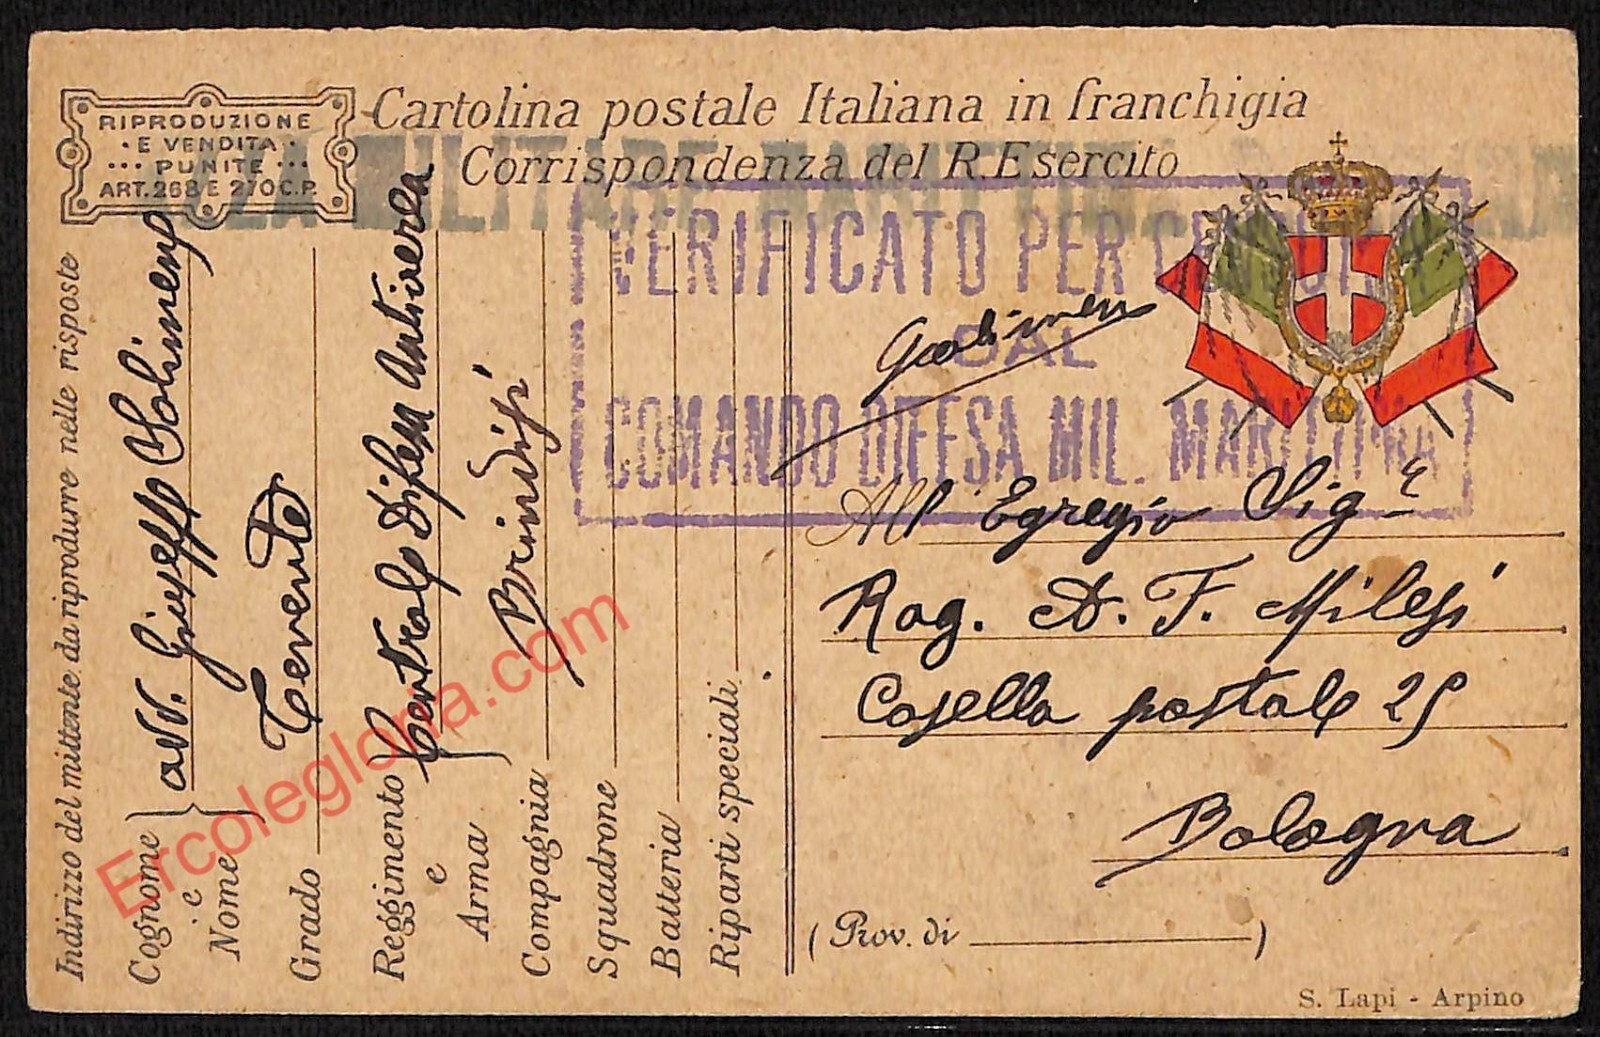 RIPRODUZIONE
· E VENDITA ·
··· PUNITE ···
ART. 268 E 270 C.P.
Cartolina postale Italiana in franchigia
Corrispondenza del R. Esercito
MILITARE MARITTIMA
VERIFICATO PER CENSURA
DAL
COMANDO DIFESA MIL. MARITTIMA
Indirizzo del mittente da riprodurre nelle risposte
Cognome e Nome avv. Giuseppe Solimena
Grado Tenente
Reggimento e Arma Centrale Difesa Antiaerea
Brindisi
Compagnia
Squadrone
Batteria
Riparti speciali
All' Egregio Sigr
Rag. A. F. Milesi
Casella postale 25
Bologna
(Prov. di )
S. Lapi - Arpino
Ercolegloria.com